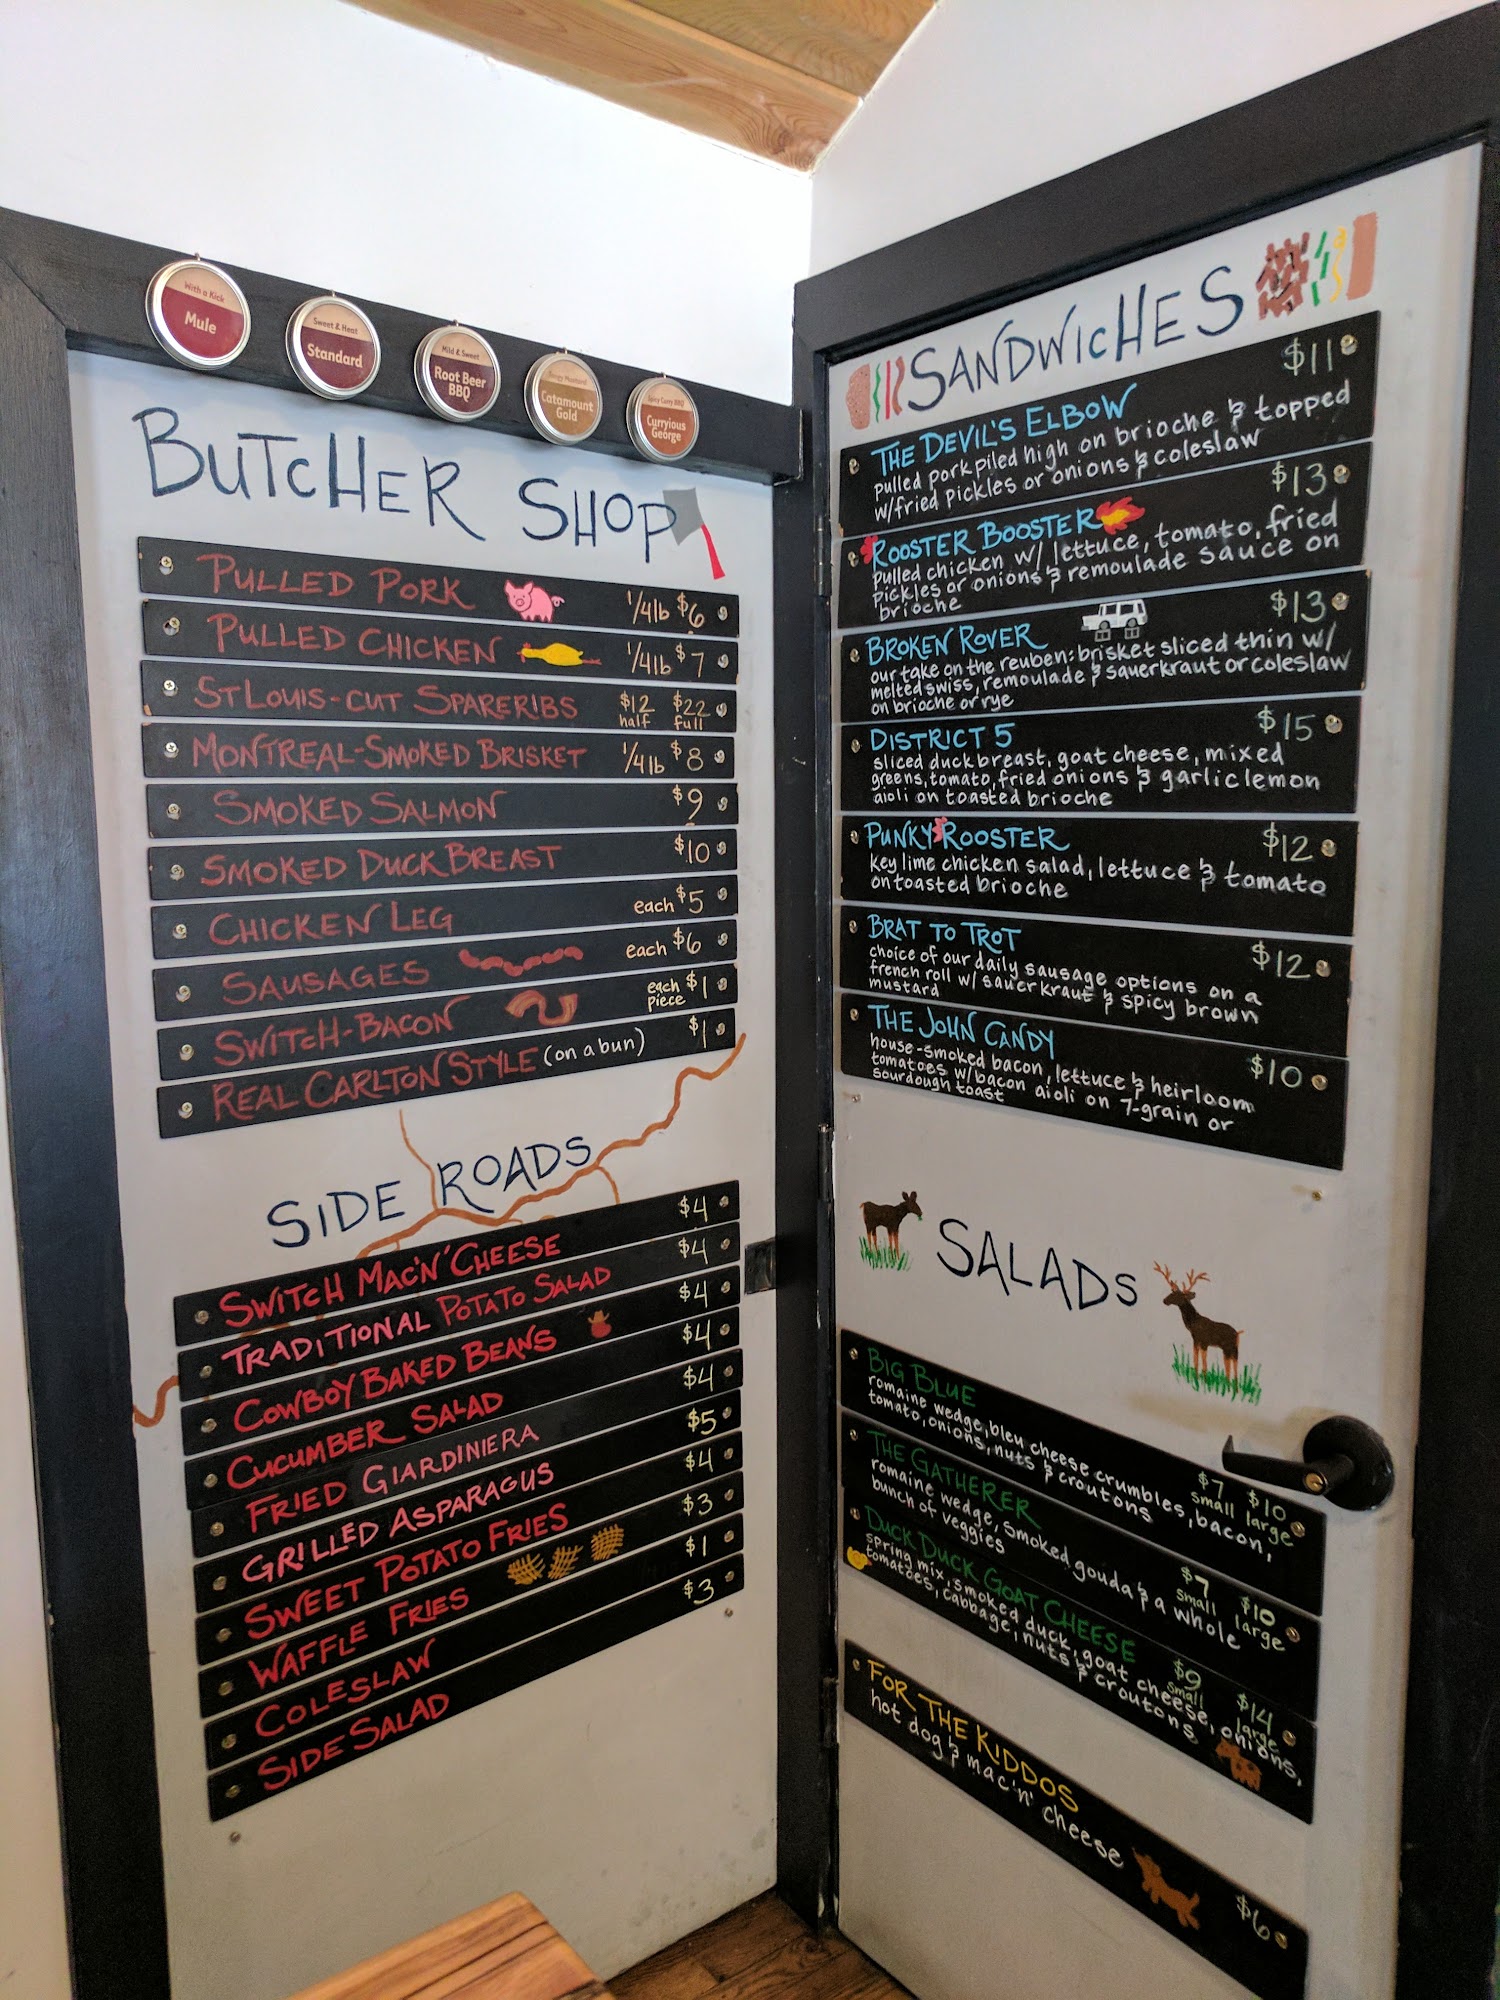 With a Kick
Mule
Sweet & Heat
Standard
Mild & Sweet
Root Beer
BBQ
Catamount
Gold
Spicy Curry BBQ
Curryious
George
BUTCHER SHOP
PULLED PORK 1/4lb $6
PULLED CHICKEN 1/4lb $7
ST LOUIS-CUT SPARERIBS $12 half $22 full
MONTREAL-SMOKED BRISKET 1/4lb $8
SMOKED SALMON $9
SMOKED DUCK BREAST $10
CHICKEN LEG each $5
SAUSAGES each $6
SWITCH-BACON each piece $1
REAL CARLTON STYLE (on a bun) $1
SIDE ROADS
SWITCH MAC'N'CHEESE $4
TRADITIONAL POTATO SALAD $4
COWBOY BAKED BEANS $4
CUCUMBER SALAD $4
FRIED GIARDINIERA $4
GRILLED ASPARAGUS $5
SWEET POTATO FRIES $4
WAFFLE FRIES $3
COLESLAW $1
SIDE SALAD $3
SANDWICHES
THE DEVIL'S ELBOW $11
pulled pork piled high on brioche & topped
w/fried pickles or onions & coleslaw
ROOSTER BOOSTER $13
pulled chicken w/ lettuce, tomato, fried
pickles or onions & remoulade sauce on
brioche
BROKEN ROVER $13
our take on the reuben: brisket sliced thin w/
melted swiss, remoulade & sauerkraut or coleslaw
on brioche or rye
DISTRICT 5 $15
sliced duck breast, goat cheese, mixed
greens, tomato, fried onions & garlic lemon
aioli on toasted brioche
PUNKY ROOSTER $12
key lime chicken salad, lettuce & tomato
on toasted brioche
BRAT TO TROT $12
choice of our daily sausage options on a
french roll w/ sauerkraut & spicy brown
mustard
THE JOHN CANDY $10
house-smoked bacon, lettuce & heirloom
tomatoes w/bacon aioli on 7-grain or
sourdough toast
SALADS
BIG BLUE $7 small $10 large
romaine wedge, bleu cheese crumbles, bacon,
tomato, onions, nuts & croutons
THE GATHERER $7 small $10 large
romaine wedge, smoked gouda & a whole
bunch of veggies
DUCK DUCK GOAT CHEESE $9 small $14 large
spring mix, smoked duck, goat cheese, onions,
tomatoes, cabbage, nuts & croutons
FOR THE KIDDOS
hot dog & mac'n' cheese $6